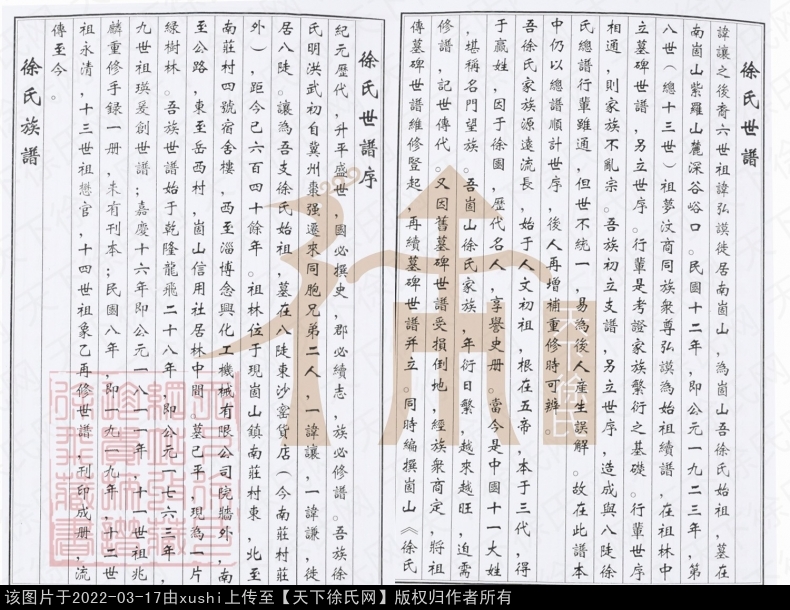 徐氏世譜序
紀元歷代，升平盛世，國必撰史，郡必續志，族必修譜。吾族徐
氏明洪武初自冀州棗强遷來同胞兄弟二人，一諱讓，一諱謙，徙
居八陡。讓為吾支徐氏始祖，墓在八陡東沙窑貨店（今南莊村莊
外），距今已六百四十餘年。祖林位于現崮山鎮南莊村東，北至
南莊村四號宿舍樓，西至淄博念興化工機械有限公司院牆外，南
至公路，東至岳西村，崮山信用社居林中間，墓已平，現為一片
緑樹林。吾族世譜始于乾隆龍飛二十八年，即公元一七六三年，
九世祖瑛爰創世譜；嘉慶十六年即公元一八一一年，十一世祖兆
麟重修手録一册，未有刊本；民國八年，即一九一九年，十二世
祖永清，十三世祖懋官，十四世祖象乙再修世譜，刊印成册，流
傳至今。
徐氏族譜
徐氏世譜
諱讓之後裔六世祖諱弘謨徙居南崮山，為崮山吾徐氏始祖，墓在
南崮山紫羅山麓深谷峪口。民國十二年，即公元一九二三年，第
八世（總十三世）祖夢汶商同族衆尊弘謨為始祖續譜，在祖林中
立墓碑世譜，另立世序。行輩是考證家族繁衍之基礎。行輩世序
相通，則家族不亂宗。吾族初立支譜，另立世序，造成與八陡徐
氏總譜行輩雖通，但世不統一，易為後人産生誤解。故在此譜本
中仍以總譜順計世序，後人再增補重修時可辨。
吾徐氏家族源遠流長，始于人文初祖，根在五帝，本于三代，得
于嬴姓，因于徐國，歷代名人，享譽史册。當今是中國十一大姓
，堪稱名門望族。吾崮山徐氏家族，年衍日繁，越來越旺，迫需
修譜，記世傳代。又因舊墓碑世譜受損倒地，經族衆商定，將祖
傳墓碑世譜維修竪起，再續墓碑世譜并立。同時編撰崮山《徐氏
天下徐氏
该图片于2022-03-17由xushi上传至【天下徐氏网】版权归作者所有